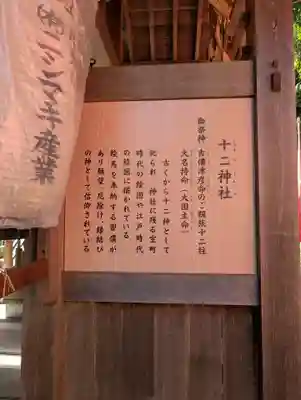 ニシマキ産業
十二神社
御祭神 吉備津彦命のご親族十二柱
大名持命(大国主命)
古くから十二神として
祀られ 神社に残る室町
時代の絵図や江戸時代
の絵図に描かれている
絵馬を奉納する習慣が
あり願望、厄除け、縁結び
の神として信仰されている